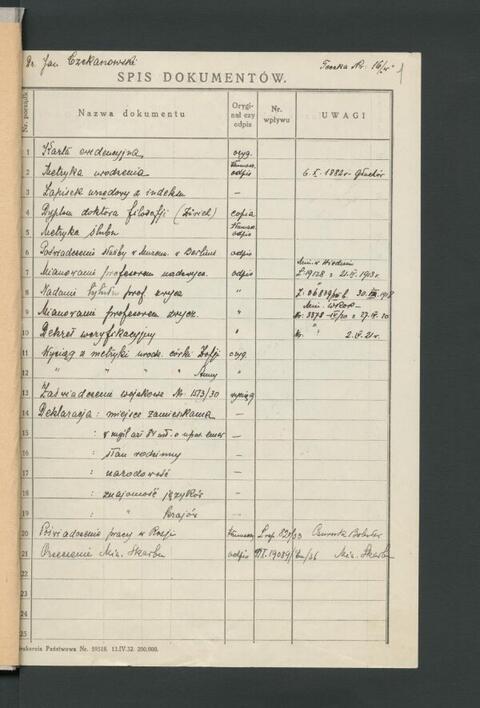 Dr. Jan Czekanowski
Teczka Nr. 16/
1
SPIS DOKUMENTÓW.
Nr. porządk.
Nazwa dokumentu
Orygi-
nał czy
odpis
Nr.
wpływu
UWAGI
1 Karta ewidencyjna oryg.
2 Metryka urodzenia tłumacz. odpis 1882 r. Głuchów
3 Zapisek urzędowy z indeksu —
4 Dyplom doktora filozofji (Zürich) copia
5 Metryka ślubu tłumacz. odpis
6 Poświadczenie służby w Muzeum w Berlinie odpis
7 Mianowanie profesorem nadzwycz. odpis 1913 r.
8 Nadanie tytułu prof. zwycz. "
9 Mianowanie profesorem zwycz. "
10 Dekret weryfikacyjny " 21 r.
11 Wyciąg z metryki urodz. córki Zofji oryg.
12 " " " " Anny "
13 Zaświadczenie wojskowe Nr. 1573/30 wyciąg
14 Deklaracja : miejsce zamieszkania —
15 : w myśl art
16 : stan rodzinny —
17 : narodowość —
18 : znajomość języków —
19 : " krajów —
20 Poświadczenie pracy w Rosji
21 Orzeczenie Min. Skarbu odpis Min. Skarbu
22
23
24
25
Drukarnia Państwowa Nr. 59518. 13.IV.32. 200.000.